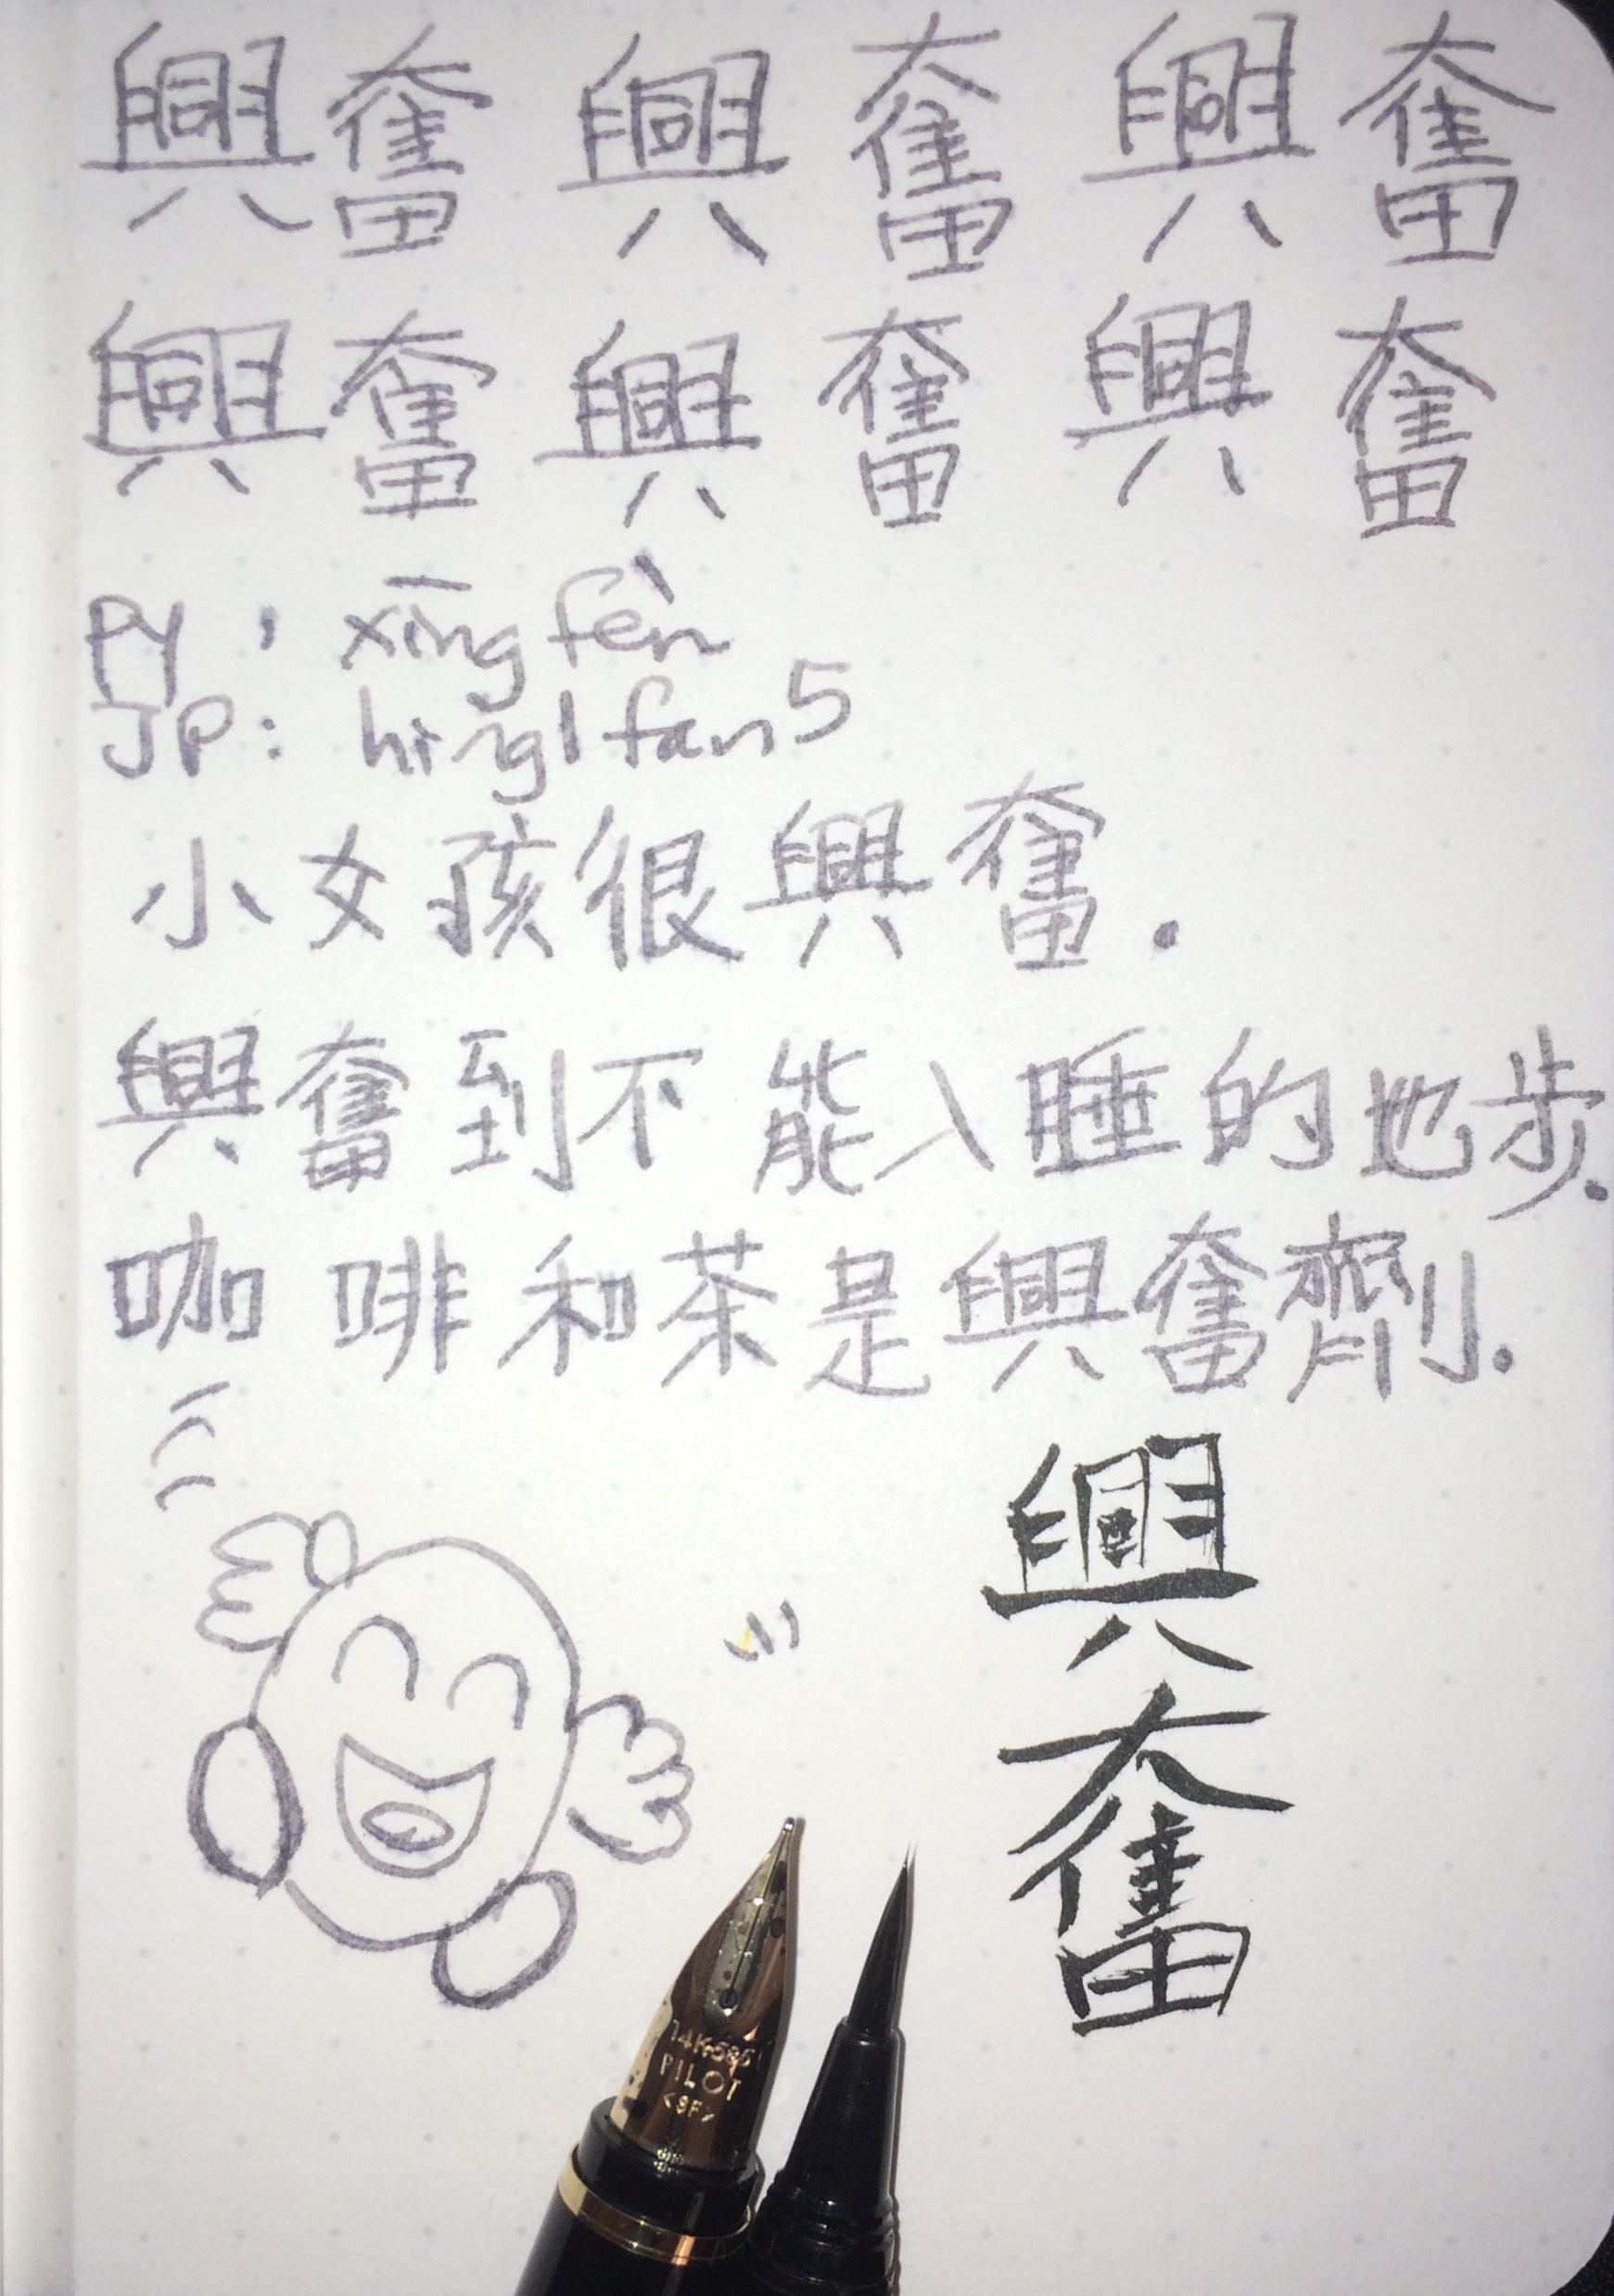 興奮 興奮 興奮
興奮 興奮 興奮
PY: xīng fèn
JP: hing1 fan5
小女孩很興奮.
興奮到不能入睡的地步.
咖啡和茶是興奮劑.
興奮
14K-585
PILOT
<SF>